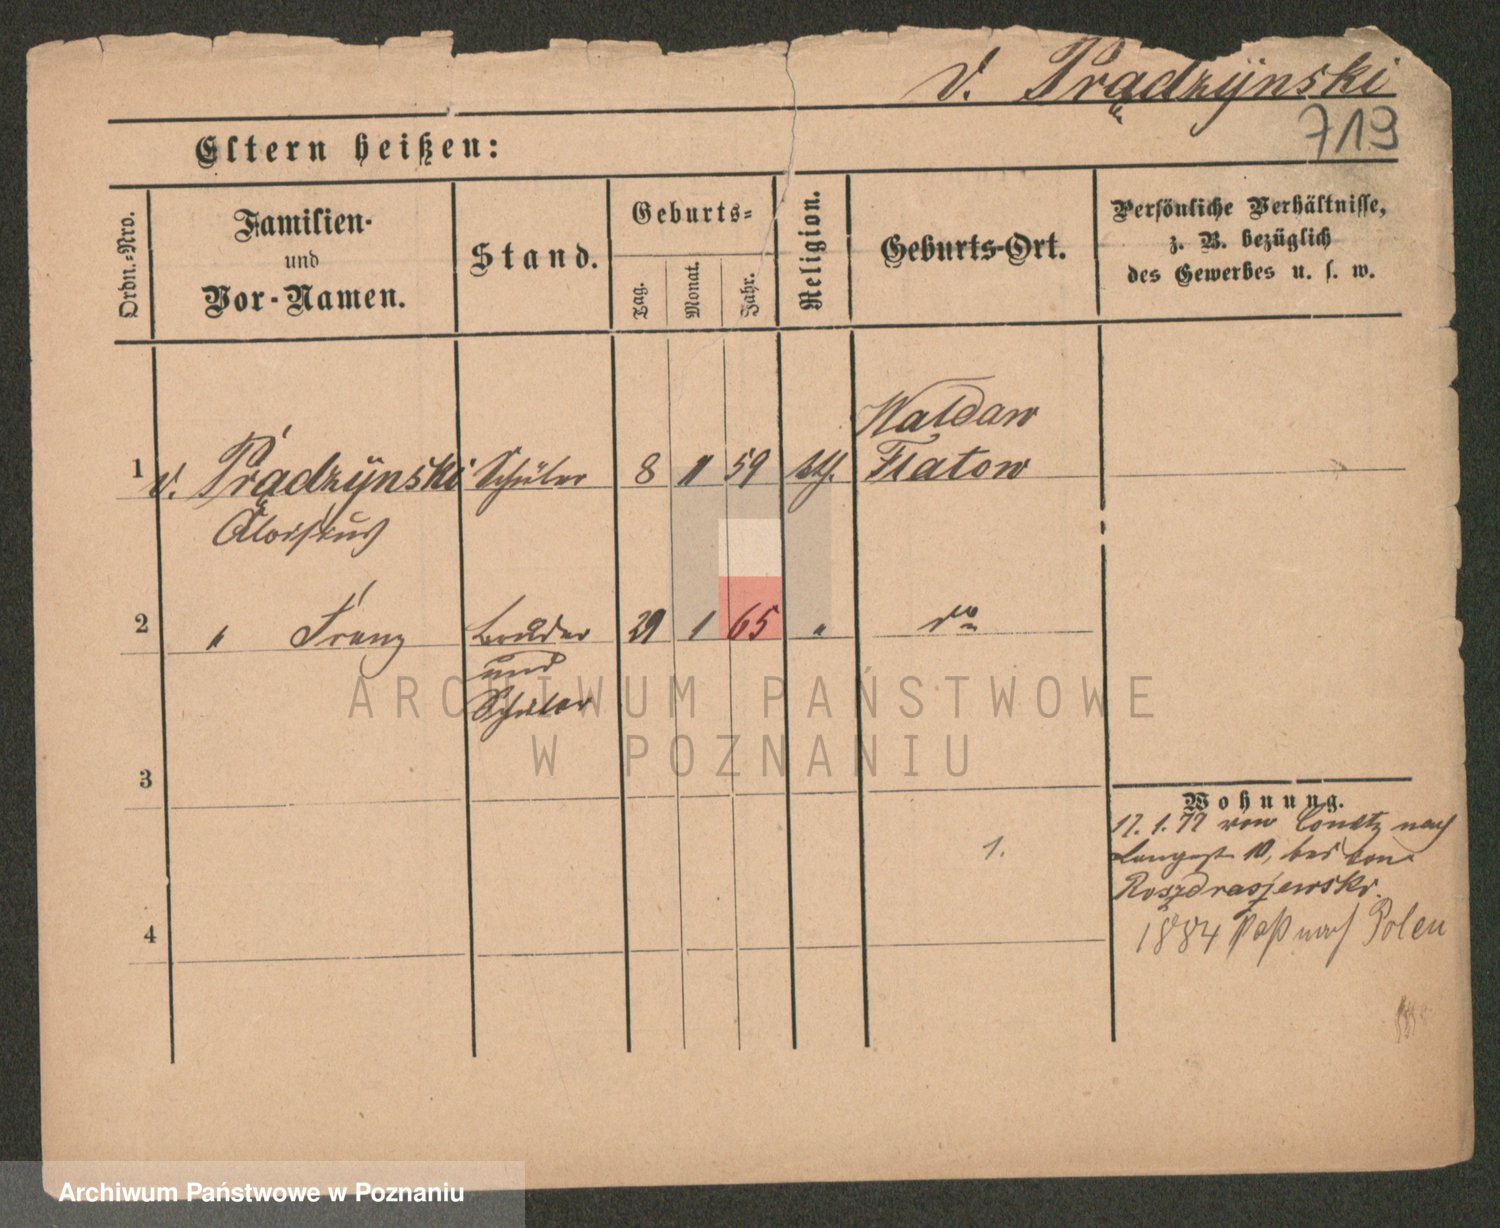 v. Prądzÿnski
719
Eltern heißen:
Ordn.-Nro.
Familien-
und
Vor-Namen.
Stand.
Geburts-
Tag.
Monat.
Jahr.
Religion.
Geburts-Ort.
Persönliche Verhältnisse,
z. B. bezüglich
des Gewerbes u. s. w.
Waldaw
1 v. Prądzÿnski Schüler 8 11 59 kth. Flatow
Aloisius
2 " Franz Bruder 29 1 65 " do
und
Schüler
ARCHIWUM PAŃSTWOWE
W POZNANIU
3
Wohnung.
17. 1. 77 von Conitz nach
1.
Langest 10, bei von
Roszdrasjewski.
4
1884 Paß nach Polen
Archiwum Państwowe w Poznaniu